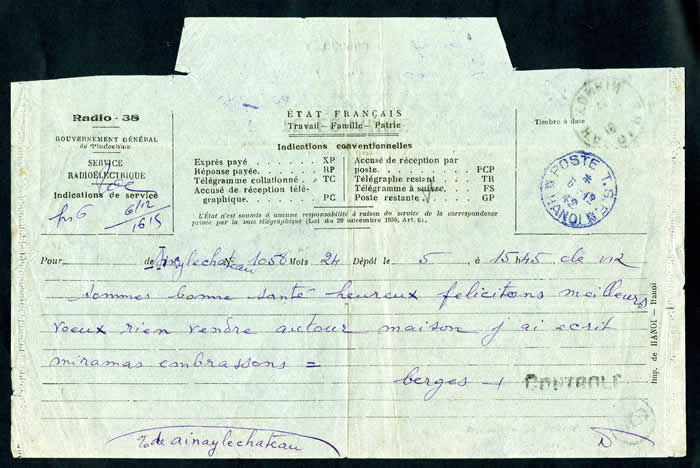 Radio - 38
GOUVERNEMENT GÉNÉRAL
de l'Indochine
SERVICE
RADIOÉLECTRIQUE
Indications de service
6/12
1615
ÉTAT FRANÇAIS
Travail - Famille - Patrie
Indications conventionnelles
Exprès payé . XP
Réponse payée. RP
Télégramme collationné . TC
Accusé de réception télé-
graphique. PC
Accusé de réception par
poste. PCP
Télégraphe restant TR
Télégramme à suisse. FS
Poste restante. GP
L'État n'est soumis à aucune responsabilité à raison du service de la correspondance
privée par la voie télégraphique (Loi du 29 novembre 1850, Art. 6).
Timbre à date
POSTE T.S.F.
HANOI
Pour de ainaylechateau N° 1058 Mots 24 Dépôt le 5 à 15h45 de
sommes bonne santé heureux felicitons meilleurs
voeux rien vendre autour maison j ai ecrit
miramas embrassons =
berges +
CONTROLE
Imp. de HANOI - Hanoi
de ainaylechateau